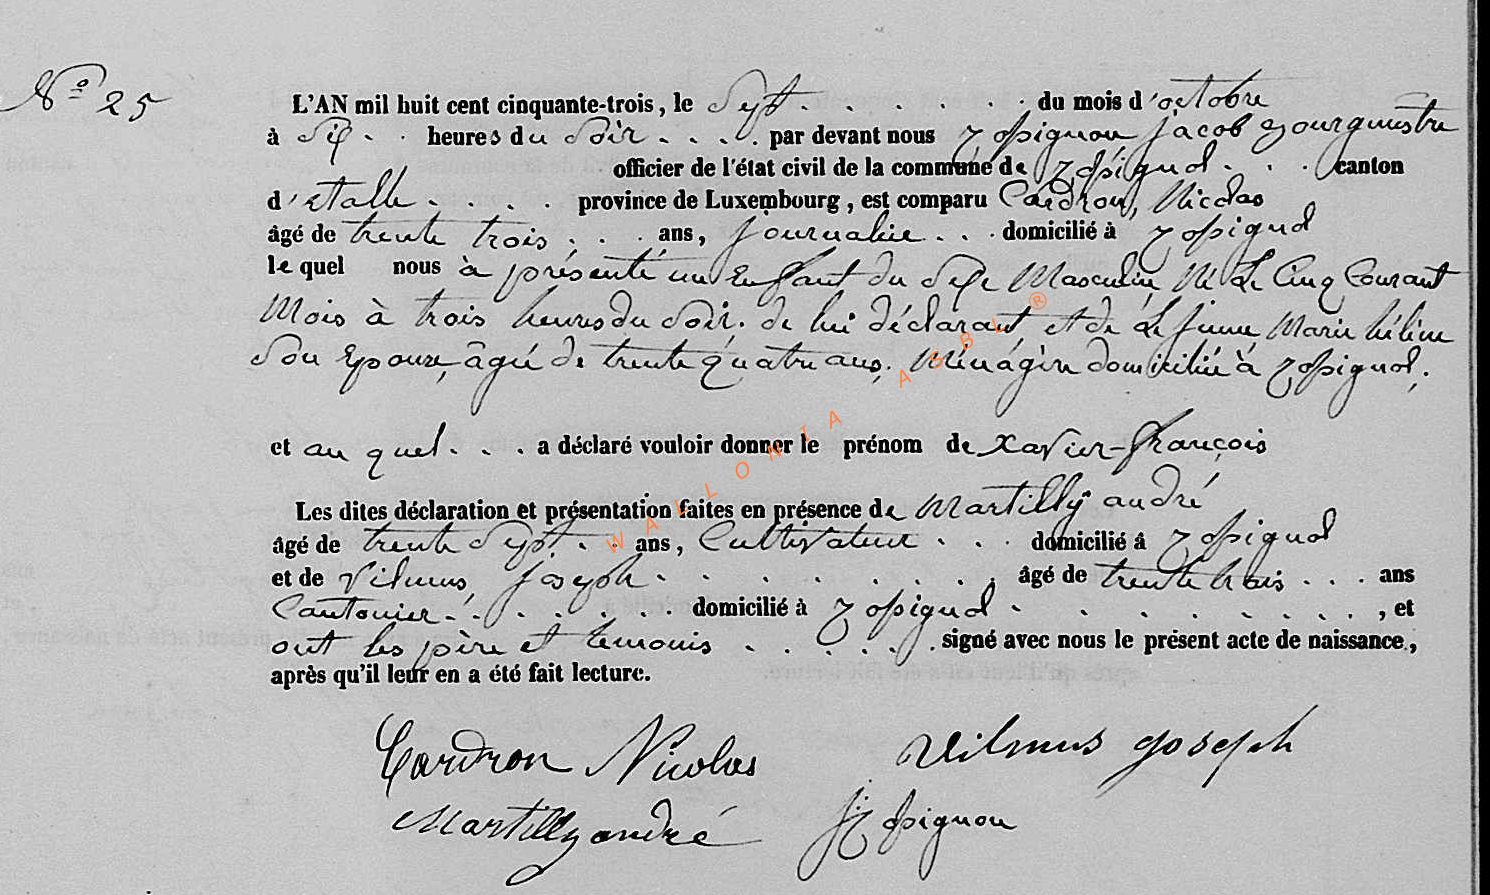 N° 25
L'AN mil huit cent cinquante-trois, le Sept . . . . . . . du mois d'octobre
à Six . . heures du Soir . . . . par devant nous Jacob Bourgmestre
officier de l'état civil de la commune de . . . canton
d'Etalle . . . . . province de Luxembourg, est comparu Cardron, Nicolas
âgé de trente trois . . . ans, journalier . . . domicilié à
le quel nous à présenté un Enfant du Sexe Masculin, Né Le Cinq Courant
Mois à trois heures du Soir. de lui déclarant et de Le jeune, Marie hélène
Son Epouse, âgée de trente quatre ans, Ménagère domiciliée à
et au quel . . . a déclaré vouloir donner le prénom de Xavier-François
Les dites déclaration et présentation faites en présence de Martilly andré
âgé de trente Sept . . ans, Cultivateur . . . domicilié à
et de Vilmus, Joseph . . . . . . . . , âgé de trente trois . . . ans
Cantonier . . . . . . . domicilié à . . . . . . . . . , et
ont les père et temouis . . . . . . signé avec nous le présent acte de naissance,
après qu'il leur en a été fait lecture.
Cardron Nicolas Vilmus joseph
Martilly andré
WALLONIA ASBL ®